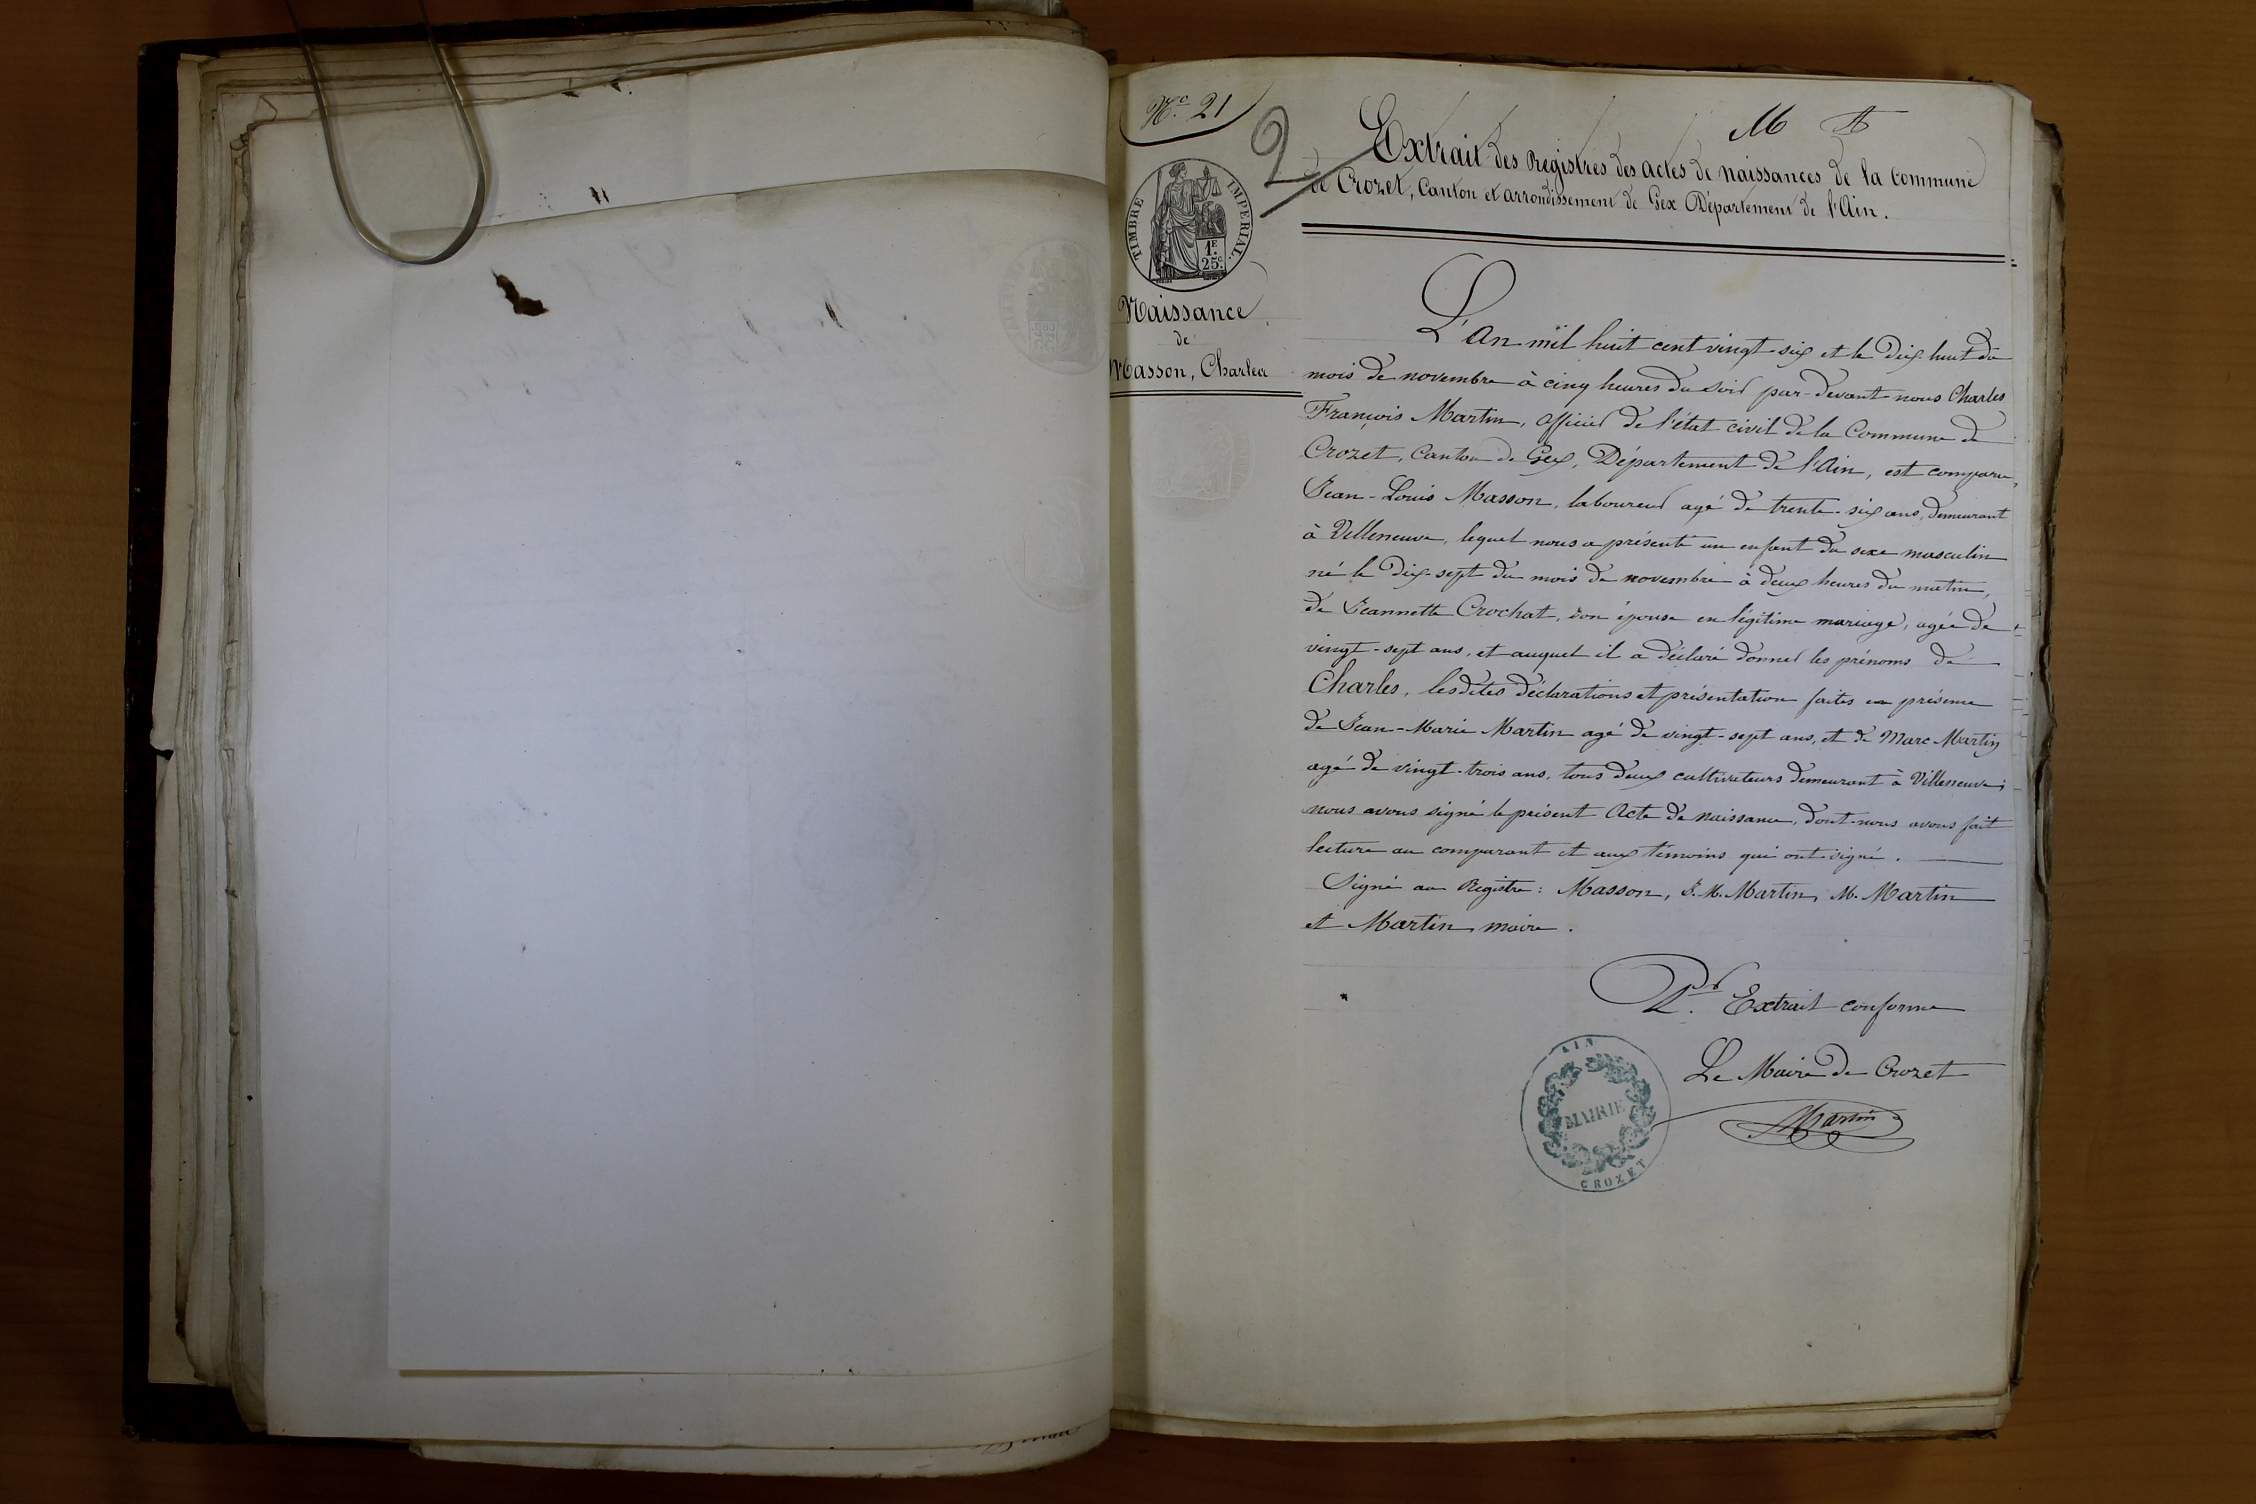 N.o 21
2
M A
Extrait des Registres des actes de naissances de la commune
de Crozet, Canton et arrondissement de Gex Département de l'Ain.
TIMBRE IMPERIAL
1F.
25c.
Naissance
de
Masson, Charles
L'An mil huit cent vingt-six et le dix huit du
mois de novembre à cinq heures du soir par-devant nous Charles
François Martin, officier de l'état civil de la Commune de
Crozet, Canton de Gex, Département de l'Ain, est comparu,
Jean-Louis Masson, laboureur agé de trente-six ans, demeurant
à Villeneuve, lequel nous a présenté un enfant du sexe masculin
né le dix-sept du mois de novembre à deux heures du matin,
de Jeannette Crochat, son épouse en légitime mariage, agée de
vingt-sept ans, et auquel il a déclaré donner les prénoms de
Charles, lesdites déclarations et présentation faites en présence
de Jean-Marie Martin agé de vingt-sept ans, et de Marc Martin
agé de vingt-trois ans, tous deux cultivateurs demeurant à Villeneuve;
nous avons signé le présent Acte de naissance, dont nous avons fait
lecture au comparant et aux témoins qui ont signé.
Signé au Registre: Masson, J. M. Martin, M. Martin
et Martin, maire.
Pr. Extrait conforme
Le Maire de Crozet
Martin
AIN
MAIRIE
CROZET